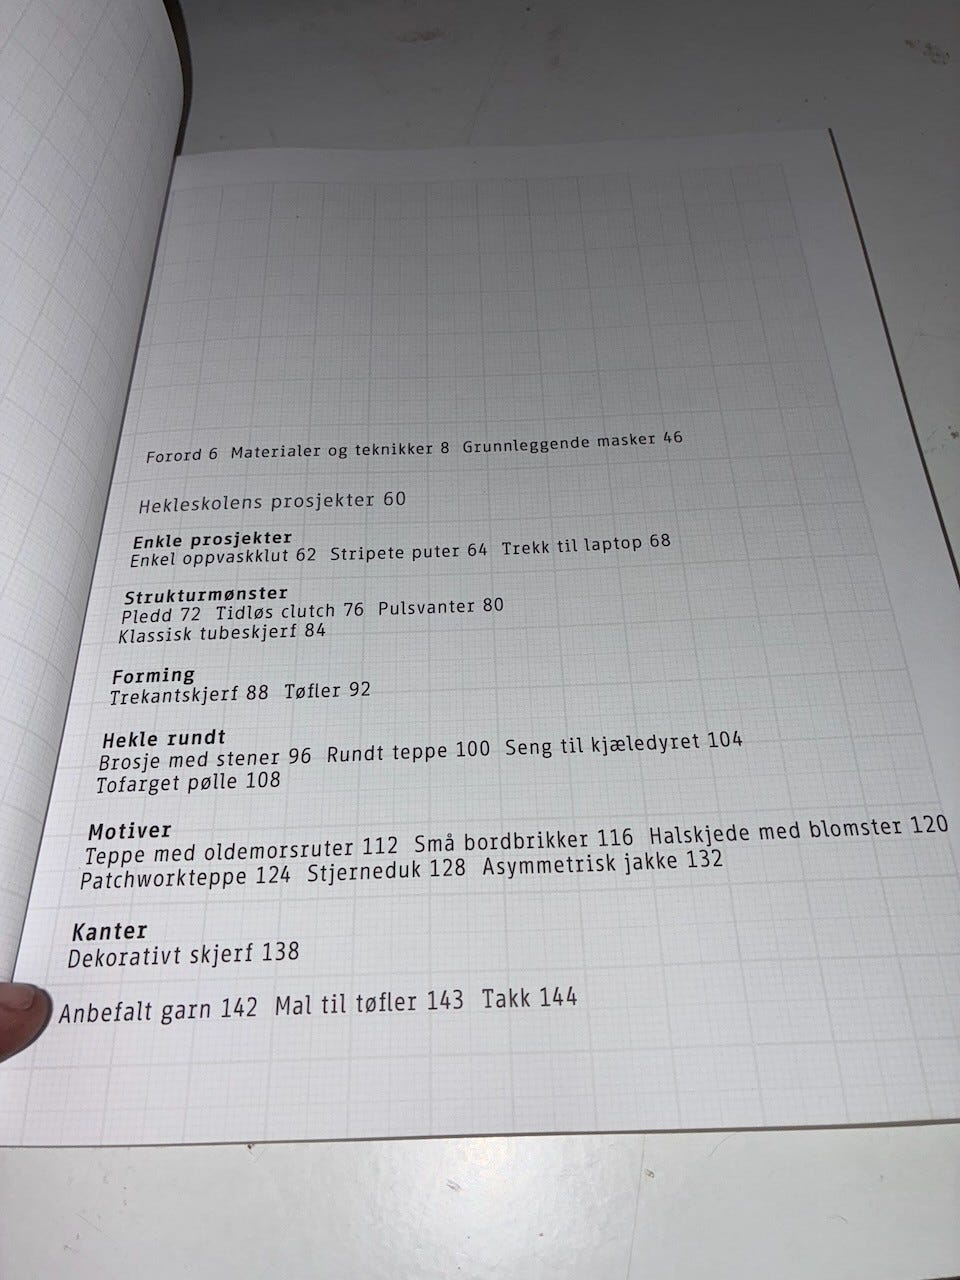 Forord 6 Materialer og teknikker 8 Grunnleggende masker 46
Hekleskolens prosjekter 60
Enkle prosjekter
Enkel oppvaskklut 62 Stripete puter 64 Trekk til laptop 68
Strukturmønster
Pledd 72 Tidløs clutch 76 Pulsvanter 80
Klassisk tubeskjerf 84
Forming
Trekantskjerf 88 Tøfler 92
Hekle rundt
Brosje med stener 96 Rundt teppe 100 Seng til kjæledyret 104
Tofarget pølle 108
Motiver
Teppe med oldemorsruter 112 Små bordbrikker 116 Halskjede med blomster 120
Patchworkteppe 124 Stjerneduk 128 Asymmetrisk jakke 132
Kanter
Dekorativt skjerf 138
Anbefalt garn 142 Mal til tøfler 143 Takk 144